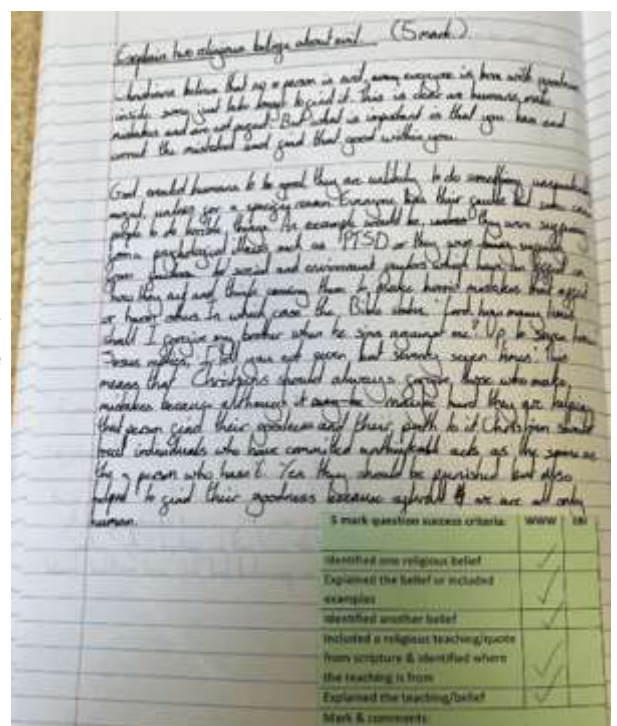 Explain two religious beliefs about evil. (5 mark)
Christians believe that no person is evil, everyone is born with goodness
inside, just to find it. This is clear as humans make
mistakes and are not perfect. But what is important is that you learn and
correct the mistakes and find that good within you.
God created humans to be good they are unlikely to do something
unless for a specific reason. Everyone has their faults but some cause
people to do horrible things. An example would be, they were suffering
from a psychological illness such as PTSD or they were
to social and environment factors which have an effect on
how they act and think causing them to make horrid mistakes that affect
or harm others. In which case the Bible states 'Lord how many times
shall I forgive my brother when he sins against me? Up to seven times
Jesus replies, I tell you not seven but seventy seven times.' This
means that Christians should always forgive those who make
mistakes because although it may be hard they are helping
that person find their goodness and their path to it. Christian should
treat individuals who have committed unthinkable acts as the same as
a person who hasn't. Yes they should be punished but also
helped to find their goodness because we are all only
human.
5 mark question success criteria: WWW EBI
Identified one religious belief
Explained the belief or included
examples
Identified another belief
Included a religious teaching/quote
from scripture & identified where
the teaching is from
Explained the teaching/belief
Mark & comments: